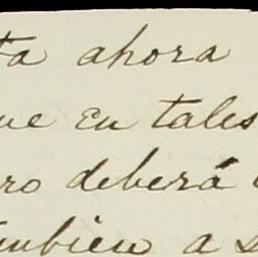 ta ahora
ue en tales
ro deberá
mbien a